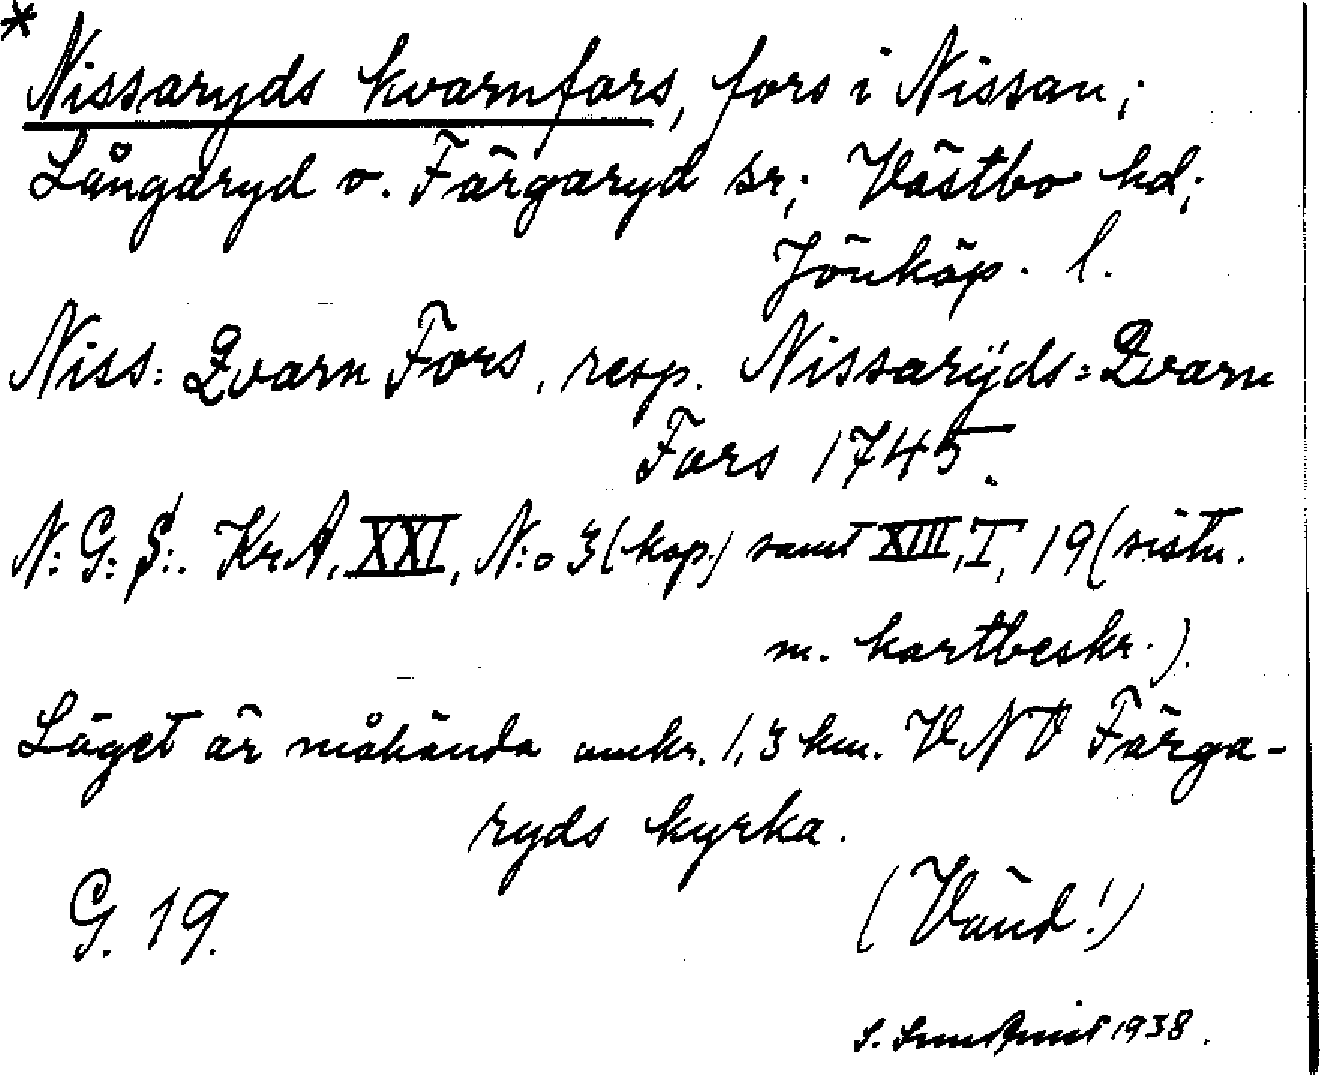 *
Nissaryds kvarnfors, fors i Nissan;
Långaryd o. Färgaryd sr; Västbo hd;
Jönköp. l.
Niss: Qvarn Fors, resp. Nissarÿds=Qvarn
Fors 1745.
N: G: S:. KrA, XXI, N:o 3 (kop.) samt XIII, I, 19 (sistn.
m. kartbeskr.).
Läget är måhända omkr. 1,3 km. VNV Färga-
ryds kyrka.
G. 19. (Vänd!)
S. 1938.